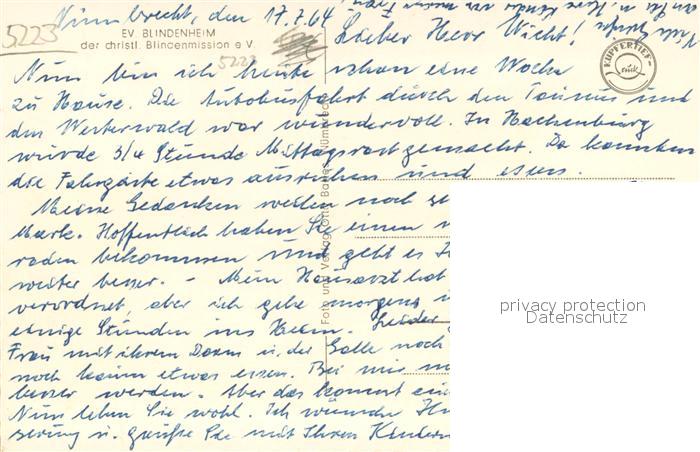 Nümbrecht, den 17.7.64
5223
EV. BLINDENHEIM
der christl. Blindenmission e.V.
5223
KUPFERTIEF-
Lieber Herr Wicht!
Nun bin ich heute schon eine Woche
zu Hause. Die Autobusfahrt durch den Taunus und
den Westerwald war wundervoll. In Hachenburg
wurde 3/4 Stunde Mittagsrast gemacht. Da konnten
die Fahrgäste etwas ausruhen und essen.
Meine Gedanken weilen noch
Mark. Hoffentlich haben Sie einen
bekommen und geht es
weiter besser. - Mein Hausarzt hat
verordnet, aber ich gehe morgens
einige Stunden ins Heim. Leider
Frau mit ihrem Darm u. der Galle noch
noch kaum etwas essen. Bei mir
besser werden. Aber das kommt
Nun leben Sie wohl. Ich wünsche
u. grüße Sie mit Ihren Kindern
Foto und Verlag Otto Nümbrecht
privacy protection
Datenschutz